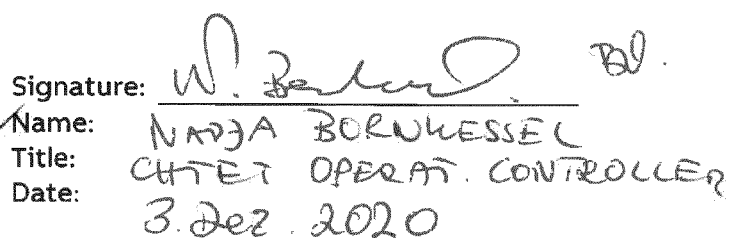 Signature: N. Bornkessel
Name: NADJA BORNKESSEL
Title: CHIEF OPERAT. CONTROLLER
Date: 3. Dez. 2020